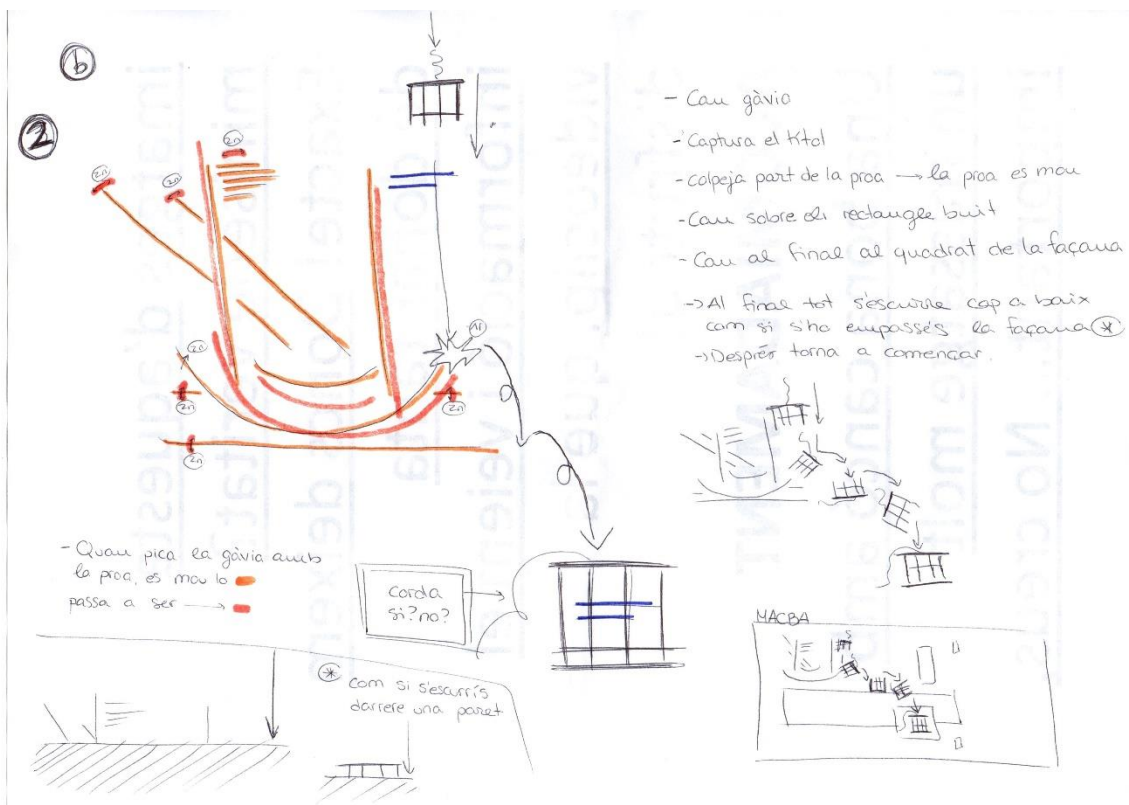 b
2
2n
2n
2n
1r
2n
2n
2n
2n
- Cau gàvia
- Captura el títol
- Colpeja part de la proa → la proa es mou
- Cau sobre el rectangle buit
- Cau al final al quadrat de la façana
→ Al final tot s'escurre cap a baix
com si s'ho empassés la façana *
→ Després torna a començar.
- Quan pica la gàvia amb
la proa, es mou lo
passa a ser →
corda
si? no?
* com si s'escurrís
darrere una paret
MACBA